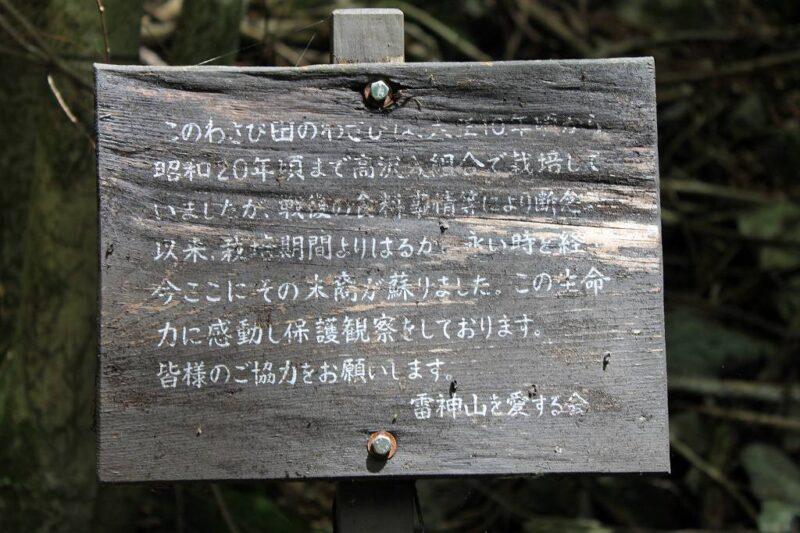 このわさび田のわさびは、大正10年頃から
昭和20年頃まで高沢組合で栽培して
いましたが、戦後の食料事情等により断念
以来、栽培期間よりはるか 永い時を経
今ここにその末裔が蘇りました。この生命
力に感動し保護観察をしております。
皆様のご協力をお願いします。
雷神山を愛する会